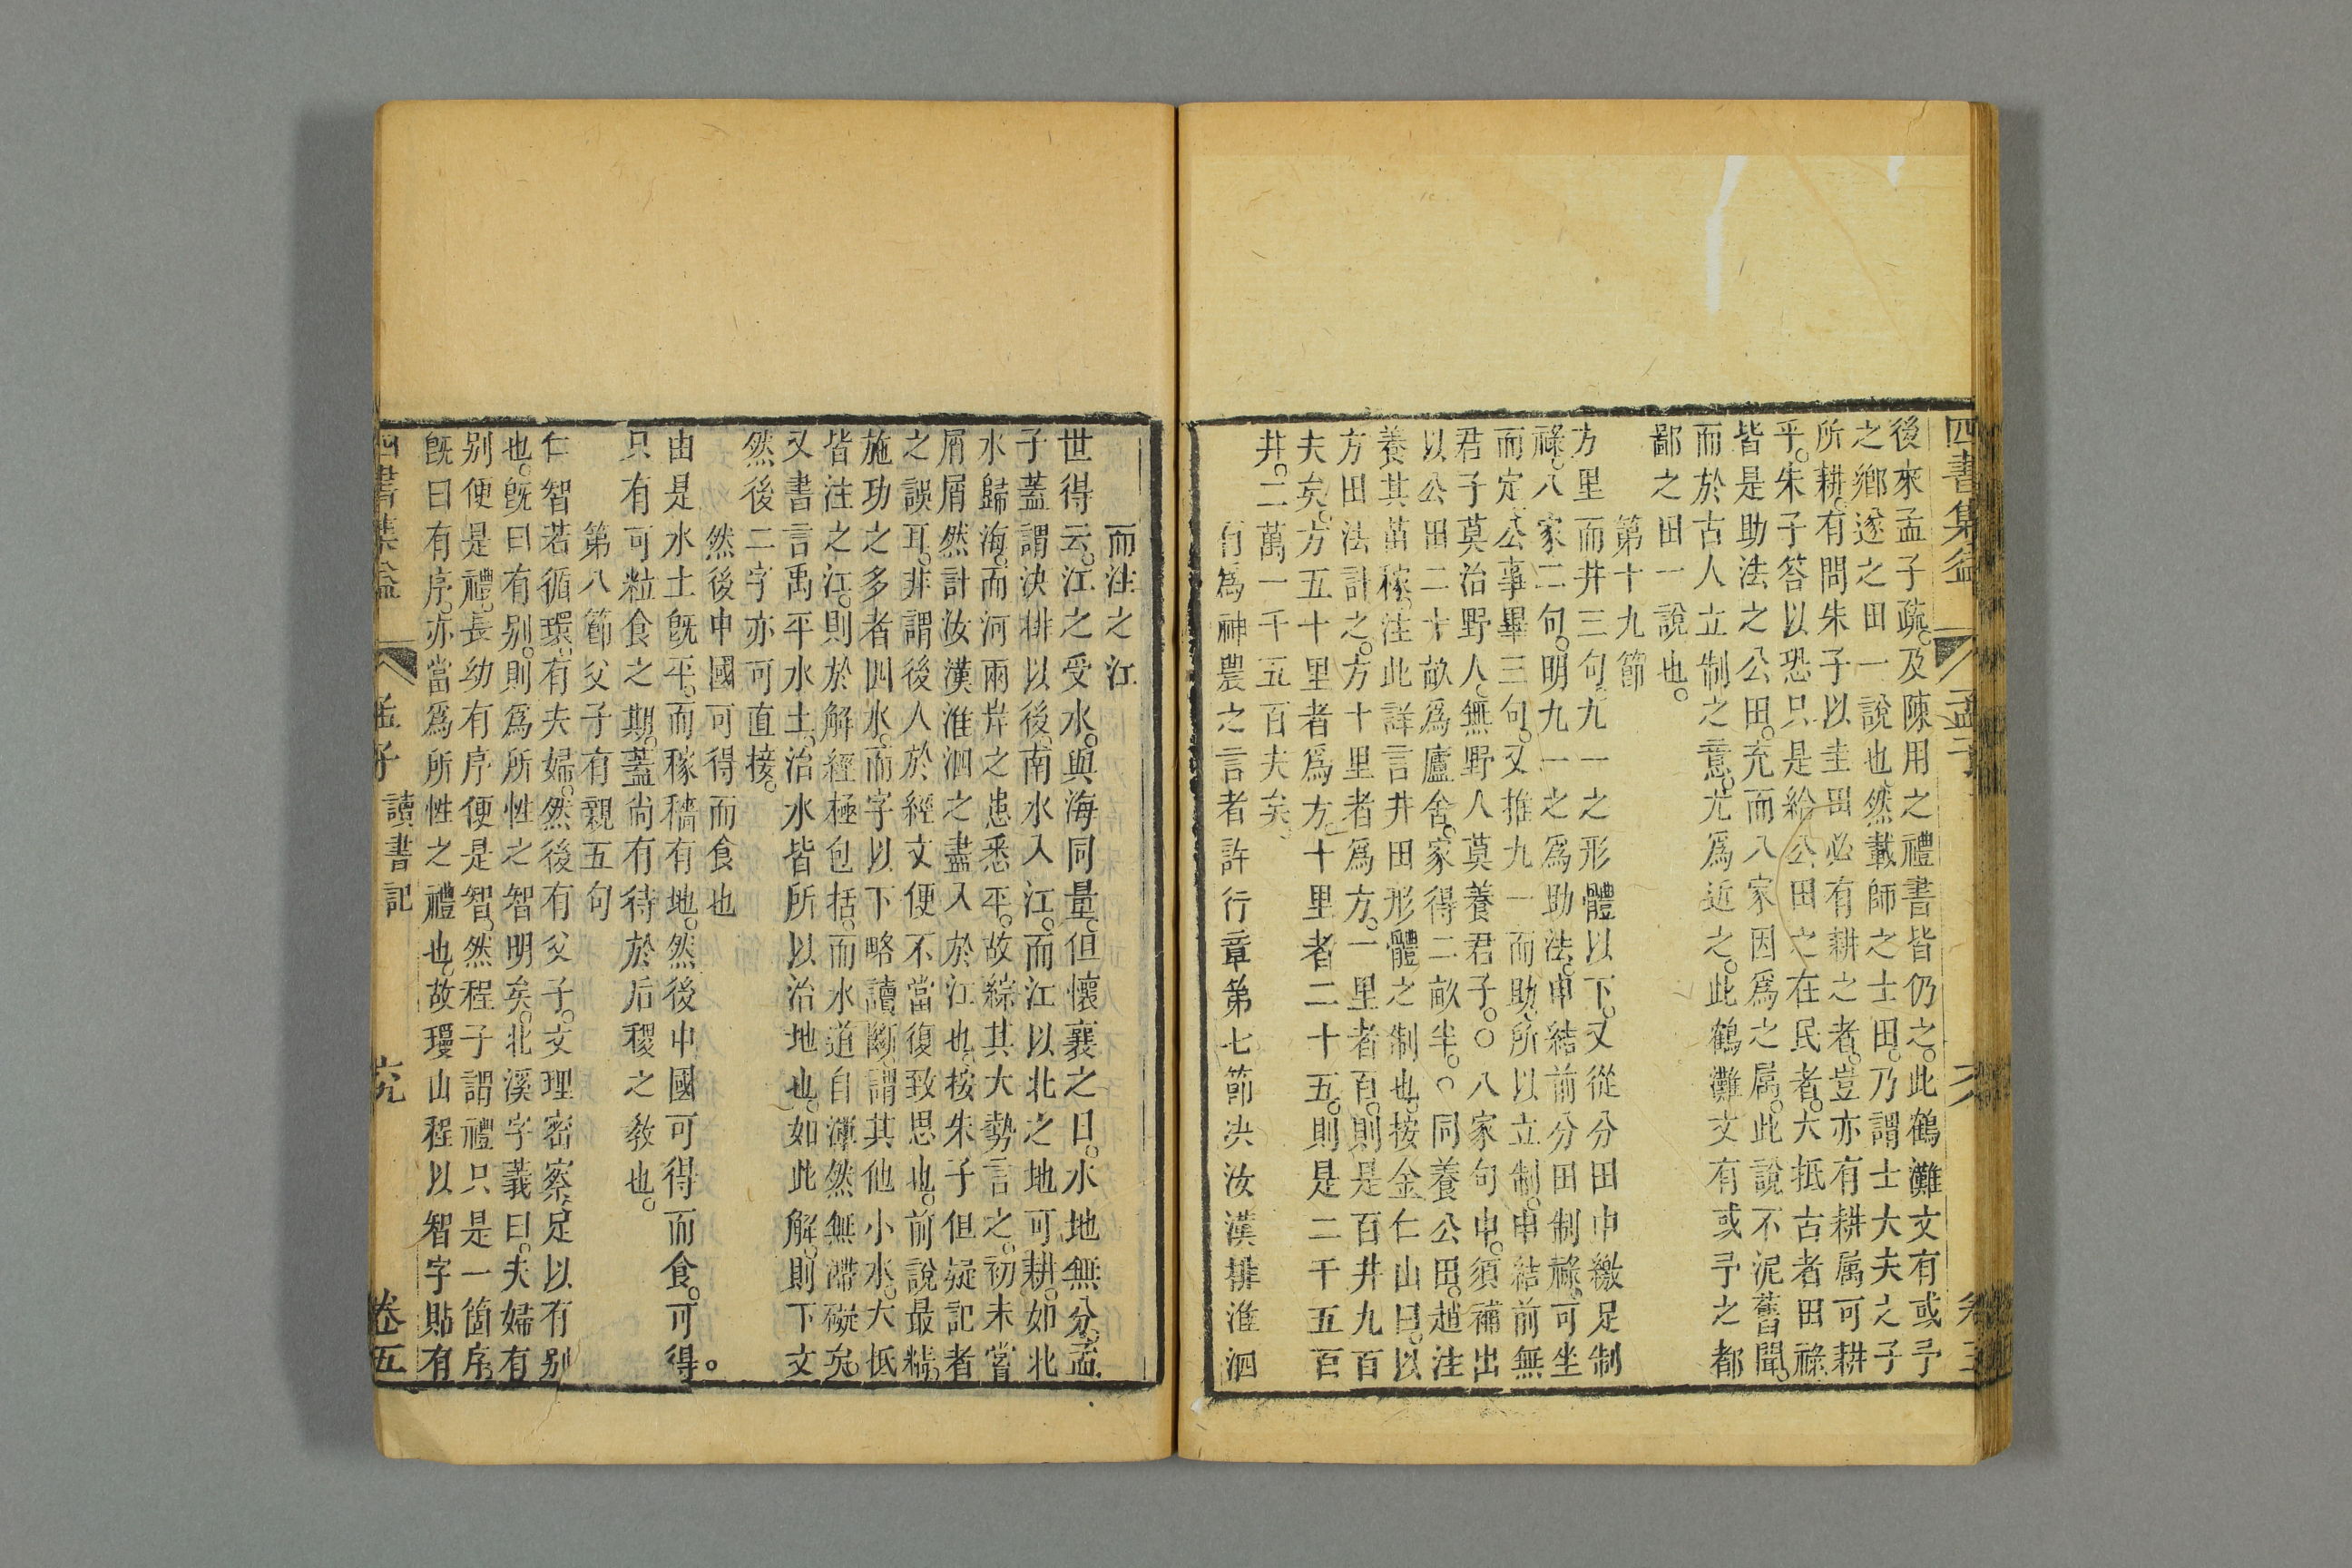 後來孟子疏。及陳用之禮書皆仍之。此鶴灘文有或予
之鄉遂之田一說也。然載師之士田。乃謂士大夫之子
所耕。有問朱子以圭田必有耕之者。豈亦有耕属可耕
乎。朱子答以恐只是給公田之在民者。大抵古者田祿
皆是助法之公田。充而八家因爲之属。此說不泥舊聞。
而於古人立制之意。尤爲近之。此鶴灘文有或予之都
鄙之田一說也。
第十九節
方里而井三句。九一之形體以下。又從分田中繳足制
祿。八家二句。明九一之爲助法。申結前分田制祿。可坐
而定。公事畢三句。又推九一而助。所以立制。申結前無
君子莫治野人。無野人莫養君子。○八家句中。須補出
以公田二十畝爲廬舍。家得二畝半。○同養公田。趙注
養其苗稼。注此詳言井田形體之制也。按金仁山曰。以
方田法計之。方十里者爲方。一里者百。則是百井九百
夫矣。方五十里者爲方。十里者二十五。則是二千五百
井。二萬一千五百夫矣。
有爲神農之言者許行章第七節決汝漢排淮泗
四書集益
孟子
卷五
而注之江
世得云。江之受水。與海同量。但懷襄之日。水地無分。孟
子蓋謂決排以後。南水入江。而江以北之地可耕。如北
水歸海。而河兩岸之患悉平。故綜其大勢言之。初未嘗
屑屑然計汝漢淮泗之盡入於江也。按朱子但疑記者
之誤耳。非謂後人於經文便不當復致思也。前說最精。
施功之多者四水。而字以下略讀斷。謂其他小水。大抵
皆注之江。則於解經極包括。而水道自渾然無滯礙矣。
又書言禹平水土。治水皆所以治地也。如此解。則下文
然後二字亦可直接。
然後中國可得而食也
由是水土旣平。而稼穡有地。然後中國可得而食。可得。
只有可粒食之期。蓋尚有待於后稷之敎也。
第八節父子有親五句
仁智若循環。有夫婦。然後有父子。文理密察。足以有别
也。旣曰有别。則爲所性之智明矣。北溪字義曰。夫婦有
别便是禮。長幼有序便是智。然程子謂禮只是一箇序。
旣曰有序。亦當爲所性之禮也。故璦山程以智字貼有
四書集益
孟子
讀書記
卷五